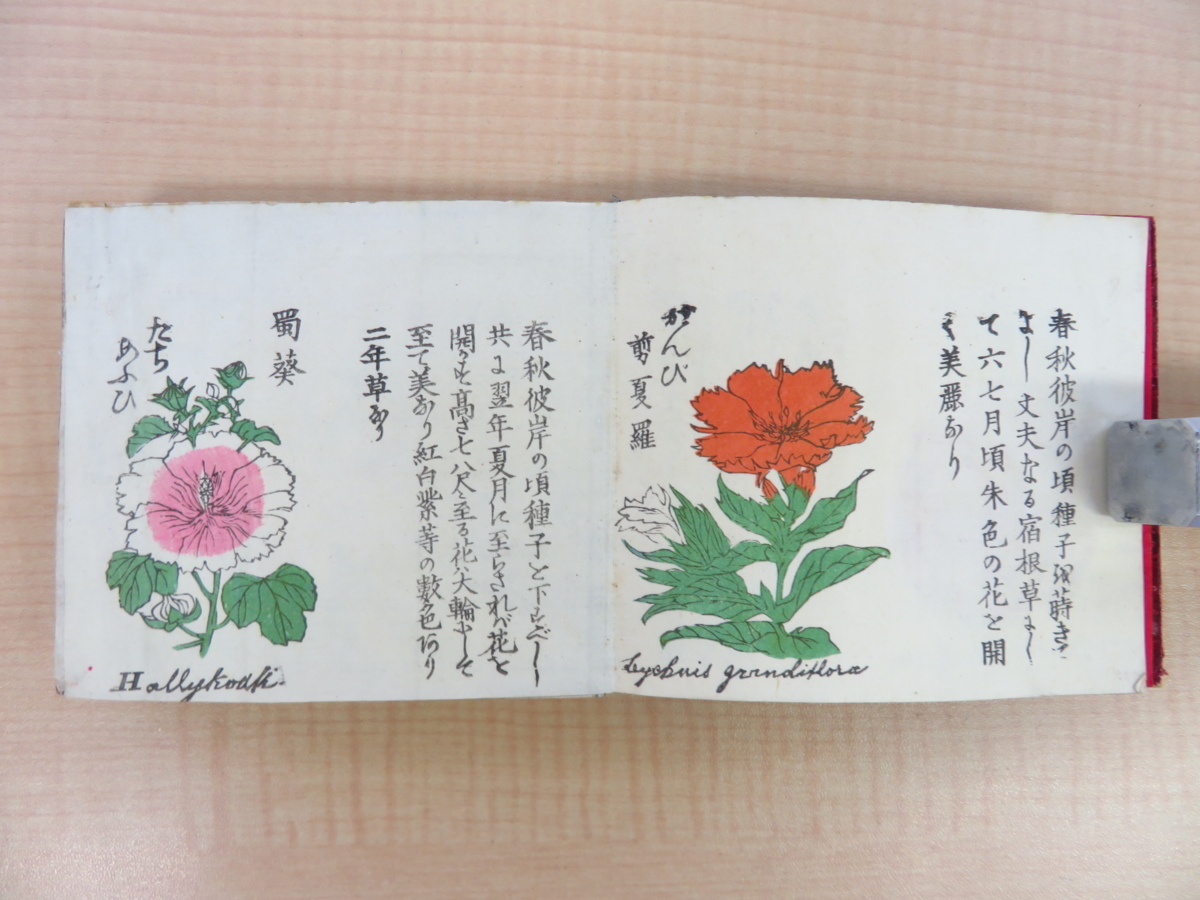 春秋彼岸の頃種子を蒔きて
よし丈夫なる宿根草にし
て六七月頃朱色の花を開
き美麗なり
がんび
剪夏羅
Lychnis grandiflora
春秋彼岸の頃種子を下すべし
共に翌年夏月に至らざれば花を
開かず高さ七八尺に至る花大輪にして
至て美なり紅白紫等の数色あり
二年草なり
蜀葵
たち
あふひ
Hallykoah